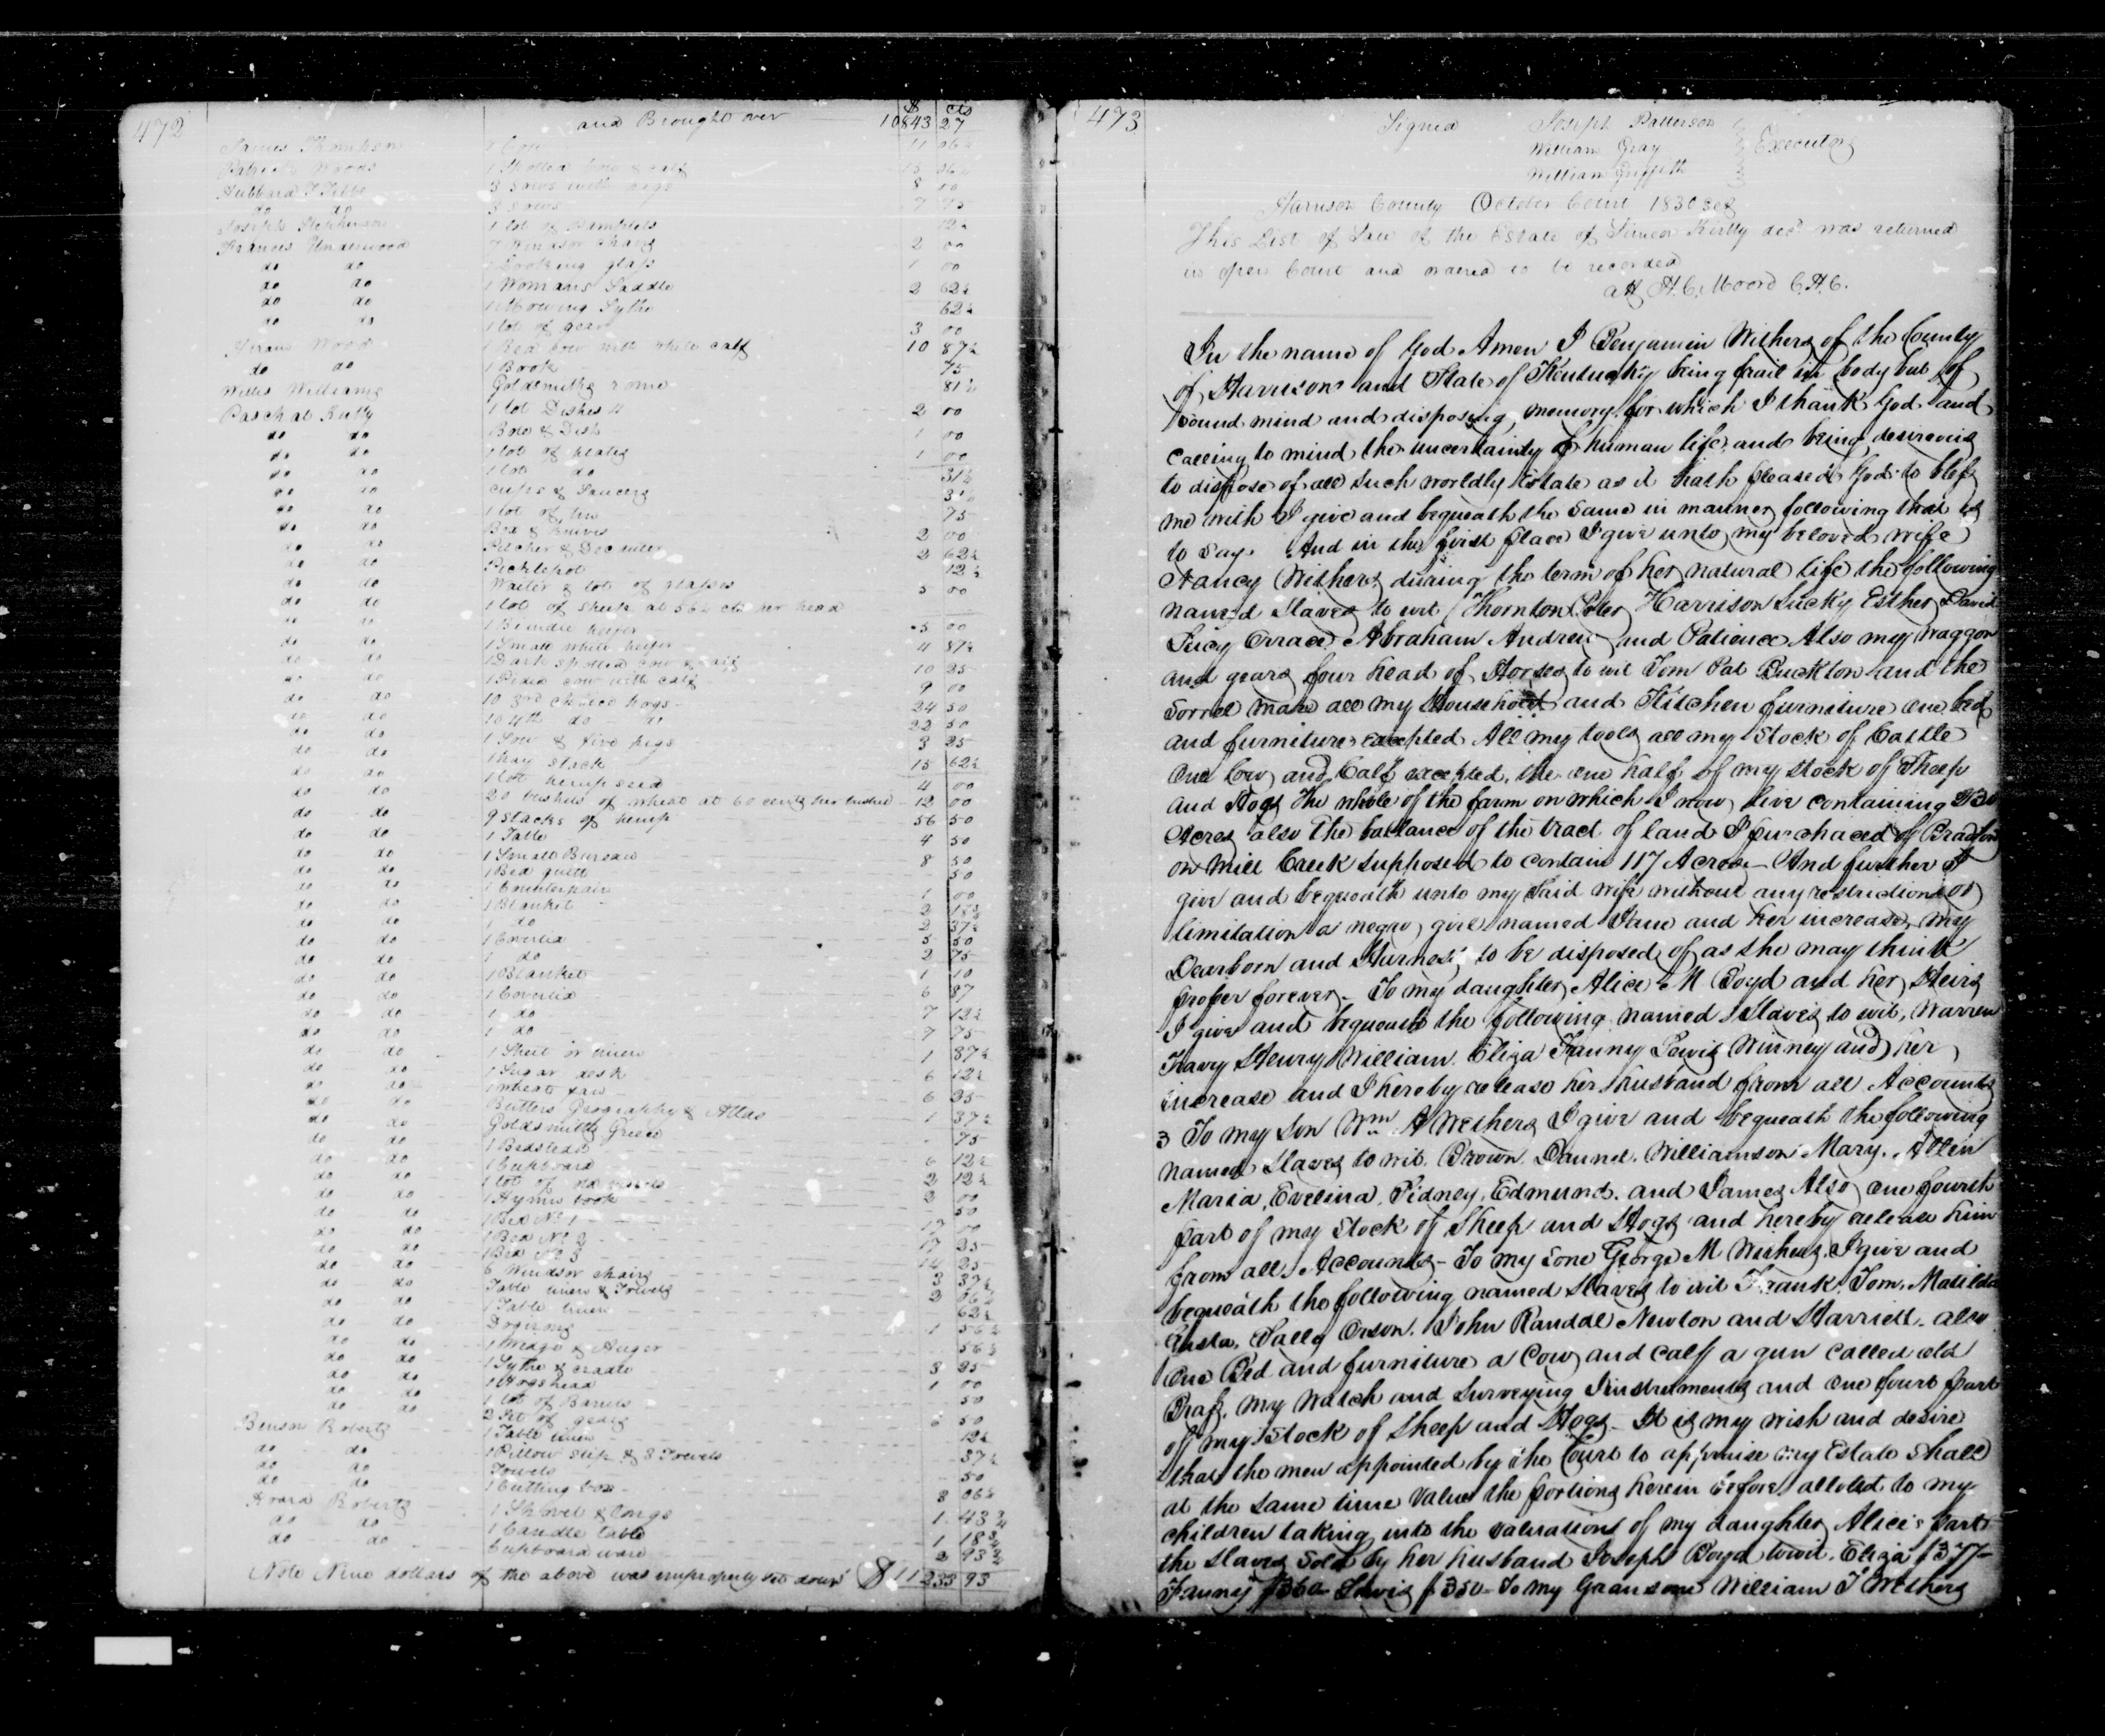 472
and Brought over $ 10843 cts 27
James Thompson 11 06¼
Patrick Woods 1 Spotted Cow & calf
Hubbard T Tibbs 3 Sows with pigs 8 00
do do 3 Sows 7 75
Joseph Stephenson 1 lot of Pamphlets 12½
Frances Underwood 7 Windsor chairs 2 00
do do Looking glass 1 00
do do 1 Womans Saddle 2 62½
do do 1 Mowing Sythe 62½
do do 1 lot of gear 3 00
Wood 1 Red Cow with white calf 10 87½
do do 1 Book 75
Willis Williams Goldsmiths rome 81¼
Paschal Kirtly 1 lot Dishes 2 00
do do Bow & Dish 1 00
do do 1 lot of plates 1 00
do do 1 lot do 31¼
do do cups & Saucers
do do 1 lot of tin 75
do do Box & knives 2 00
do do Pitcher & Decanter 2 62½
do do Picklepot 12½
do do Waiter & lot of glasses 5 00
do do 1 lot of Sheep at 56¼ cts per head
do do 1 Brindle heifer 5 00
do do 1 Small white heifer 4 87½
do do 1 Dark Spotted cow & calf 10 25
do do 1 Pided cow with calf 9 00
do do 10 3rd choice hogs 24 50
do do 10 4th do do 22 50
do do 1 Sow & five pigs 3 25
do do 1 hay stack 15 62½
do do 1 lot hemp seed 4 00
do do 20 bushels of wheat at 60 cents per bushel 12 00
do do 9 Stacks of hemp 56 50
do do 1 Table 4 50
do do 1 Small Bureau 8 50
do do 1 Bed quilt 50
do do 1 Counterpain 1 00
do do 1 Blanket 2
do do 1 do 2 37½
do do 1 Coverlid 5 50
do do 1 do 2 75
do do 1 Blanket 1 10
do do 1 Coverlid 6 87
do do 1 do 7 12½
do do 1 do 7 75
do do 1 Sheet or linen 1 87½
do do 1 Sugar desk 6 12½
do do 1 wheat fan 6 25
do do Butlers Geography & Atlas 1 37½
do do Goldsmiths Greece 75
do do 1 Bedstead
do do 1 Cupboard 6 12½
do do 1 lot of old 2 12½
do do 1 Hymn book 2 00
do do 1 Bed No 1 50
do do 1 Bed No 2 17 00
do do 1 Bed No 3 17 25
do do 6 Windsor chairs 14 25
do do Table linen & Towels 3 37½
do do 1 Table linen 2 06¼
do do Dogirons 62½
do do 1 Wedge & Auger 1 56¼
do do 1 Sythe & cradle 56¼
do do 1 Hogshead 3 25
do do 1 lot of Barrels 1 00
do do 2 Set of gears 50
Benson Roberts 1 Table linen 6 50
do do 1 Pillow slip & 3 Towels 12½
do do Towels 37½
do do 1 Cutting box 50
Roberts 1 Shovel & tongs 3 06¼
do do 1 Candle table 1 43¾
do do Cupboard ware 1 18¾
2 93¾
Note Nine dollars of the above was improperly set down $11233 93
473
Signed Joseph Patterson
William Gray Executors
William Griffith
Harrison County October Court 1830 Sct
This List of Sale of the Estate of Simeon Kirtly decd was returned
in open Court and ordered to be recorded
att H. C. Moore C.H.C.
In the name of God Amen I Benjamin Withers of the County
of Harrison and State of Kentucky being frail in body but of
sound mind and disposing memory for which I thank God and
calling to mind the uncertainty of human life and being desireous
to dispose of all such worldly Estate as it hath pleased God to bless
me with I give and bequeath the same in manner following that is
to say. And in the first place I give unto my beloved wife
Nancy Withers during the term of her natural life the following
named Slaves to wit Thornton Peter Harrison Lucky Esther David
Lucy Abraham Andrew and Patience Also my waggon
and gears four head of Horses to wit Tom Pat Buckton and the
Sorrel mare all my Household and Kitchen furniture one bed
and furniture excepted All my tools all my Stock of Cattle
One Cow and Calf excepted, the one half of my stock of Sheep
and Hogs The whole of the farm on which I now live containing 230
Acres also the ballance of the tract of land I purchased of Bradford
on Mill Creek supposed to contain 117 Acres - And further I
give and bequeath unto my said wife without any restrictions or
limitation a negro girl named Jane and her increase, my
Dearborn and Harness to be disposed of as she may think
proper forever. To my daughter Alice M Boyd and her Heirs
I give and bequeath the following named Slaves to wit, Warren
Travy Henry William. Eliza Fanny Lewis Winney and her
increase and I hereby release her husband from all Accounts
3 To my son Wm A Withers I give and bequeath the following
named Slaves to wit. Brown. Daniel. Williamson Mary. Allen
Maria, Evelina, Sidney, Edmund. and James Also one fourth
part of my stock of Sheep and Hogs and hereby release him
from all Accounts - To my sone George M Withers I give and
bequeath the following named Slaves to wit Frank. Tom. Matilda
Sally Orson. John Randal Newton and Harriett. also
One Bed and furniture a Cow and calf a gun called old
My Watch and Surveying Instruments and one fourt part
of my Stock of Sheep and Hogs - It is my wish and desire
that the men appointed by the Court to appraise my Estate Shall
at the same time Value the portions herein before alloted to my
children taking into the valuation of my daughter Alice's part
the Slaves Sold by her husband Joseph Boyd towit. Eliza $377-
Fanny $360- Lewis $350- To my Grandsone William T Withers